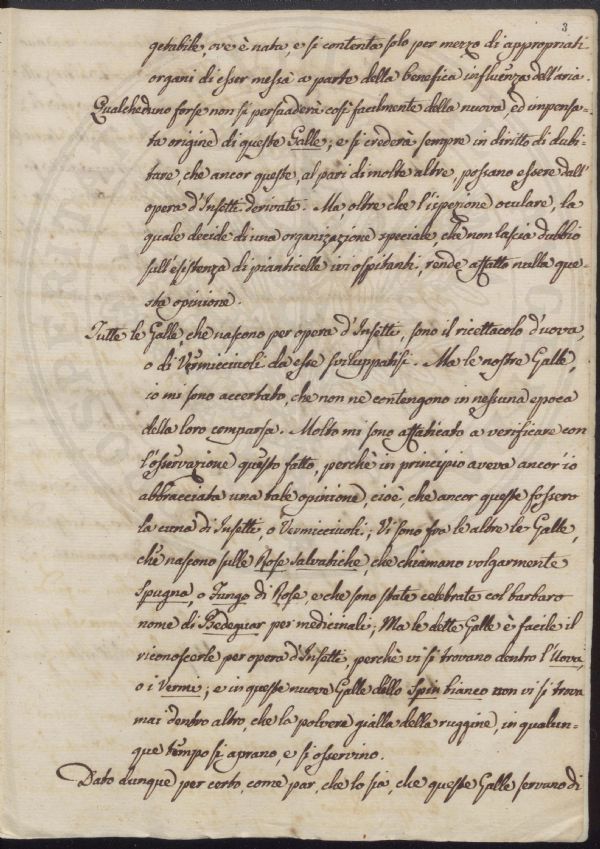 3
getabile, ove è nata, e si contenta solo per mezzo di appropriati
organi di esser messa a parte della benefica influenza dell'aria.
Qualcheduno forse non si persuaderà così facilmente della nuova, ed impensa-
ta origine di queste Galle; e si crederà sempre in diritto di dubi-
tare, che ancor queste, al pari di molte altre, possano essere dall'
opera d'Insetti derivate. Ma, oltre che l'ispezione oculare, la
quale decide di una organizazione speciale, che non lascia dubbio
sull'esistenza di pianticelle ivi ospitanti, rende affatto nulla que-
sta opinione.
Tutte le Galle che nascono per opera d'Insetti, sono il ricettacolo d'uova,
o di Vermiccivoli da esse sviluppatisi. Ma le nostre Galle,
io mi sono accertato, che non ne contengono in nessuna epoca
della loro comparsa. Molto mi sono affaticato a verificare con
l'osservazione questo fatto, perchè in principio aveva ancor'io
abbracciata una tale opinione, cioè, che ancor queste fossero
la cuna di Insetti, o Vermiccivoli; Vi sono fra le altre le Galle,
che nascono sulle Rose salvatiche, che chiamano volgarmente
Spugna, o Fungo di Rose, e che sono state celebrate col barbaro
nome di Bedeguar per medicinali; Ma le dette Galle è facile il
riconoscerle per opera d'Insetti, perchè vi si trovano dentro l'Uova,
o i Vermi; e in queste nuove Galle dello Spin bianco non vi si trova
mai dentro altro, che la polvere gialla della ruggine, in qualun-
que tempo si aprano, e si osservino.
Dato dunque per certo, come par, che lo sia, che queste Galle servano di